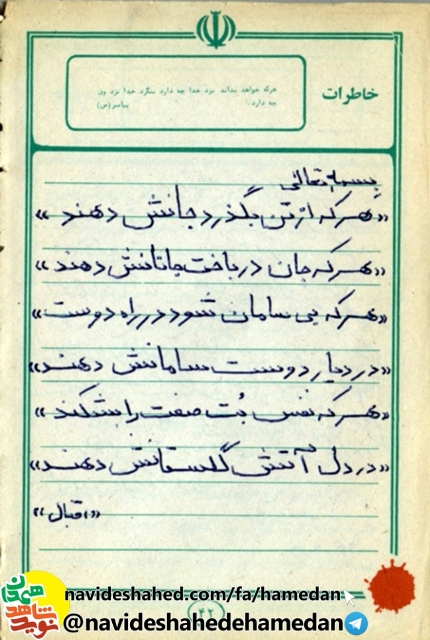 خاطرات
هرکه خواهد بداند نزد خدا چه دارد بنگرد خدا نزد وی
چه دارد.
پیامبر(ص)
بسمه تعالی
«هر که از تن بگذرد جانش دهند»
«هر که جان درباخت جانانش دهند»
«هر که بی سامان شود در راه دوست»
«در دیار دوست سامانش دهند»
«هر که نفس بُت صفت را بشکند»
«در دل آتش گلستانش دهند»
«اقبال»
navideshahed.com/fa/hamedan
@navideshahedehamedan
نوید شاهد
همدان